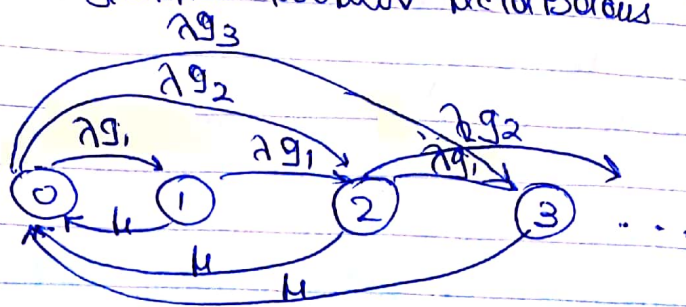 λg₃
λg₂
λg₁ λg₁ λg₂
λg₁
0 1 2 3 ....
μ
μ
μ